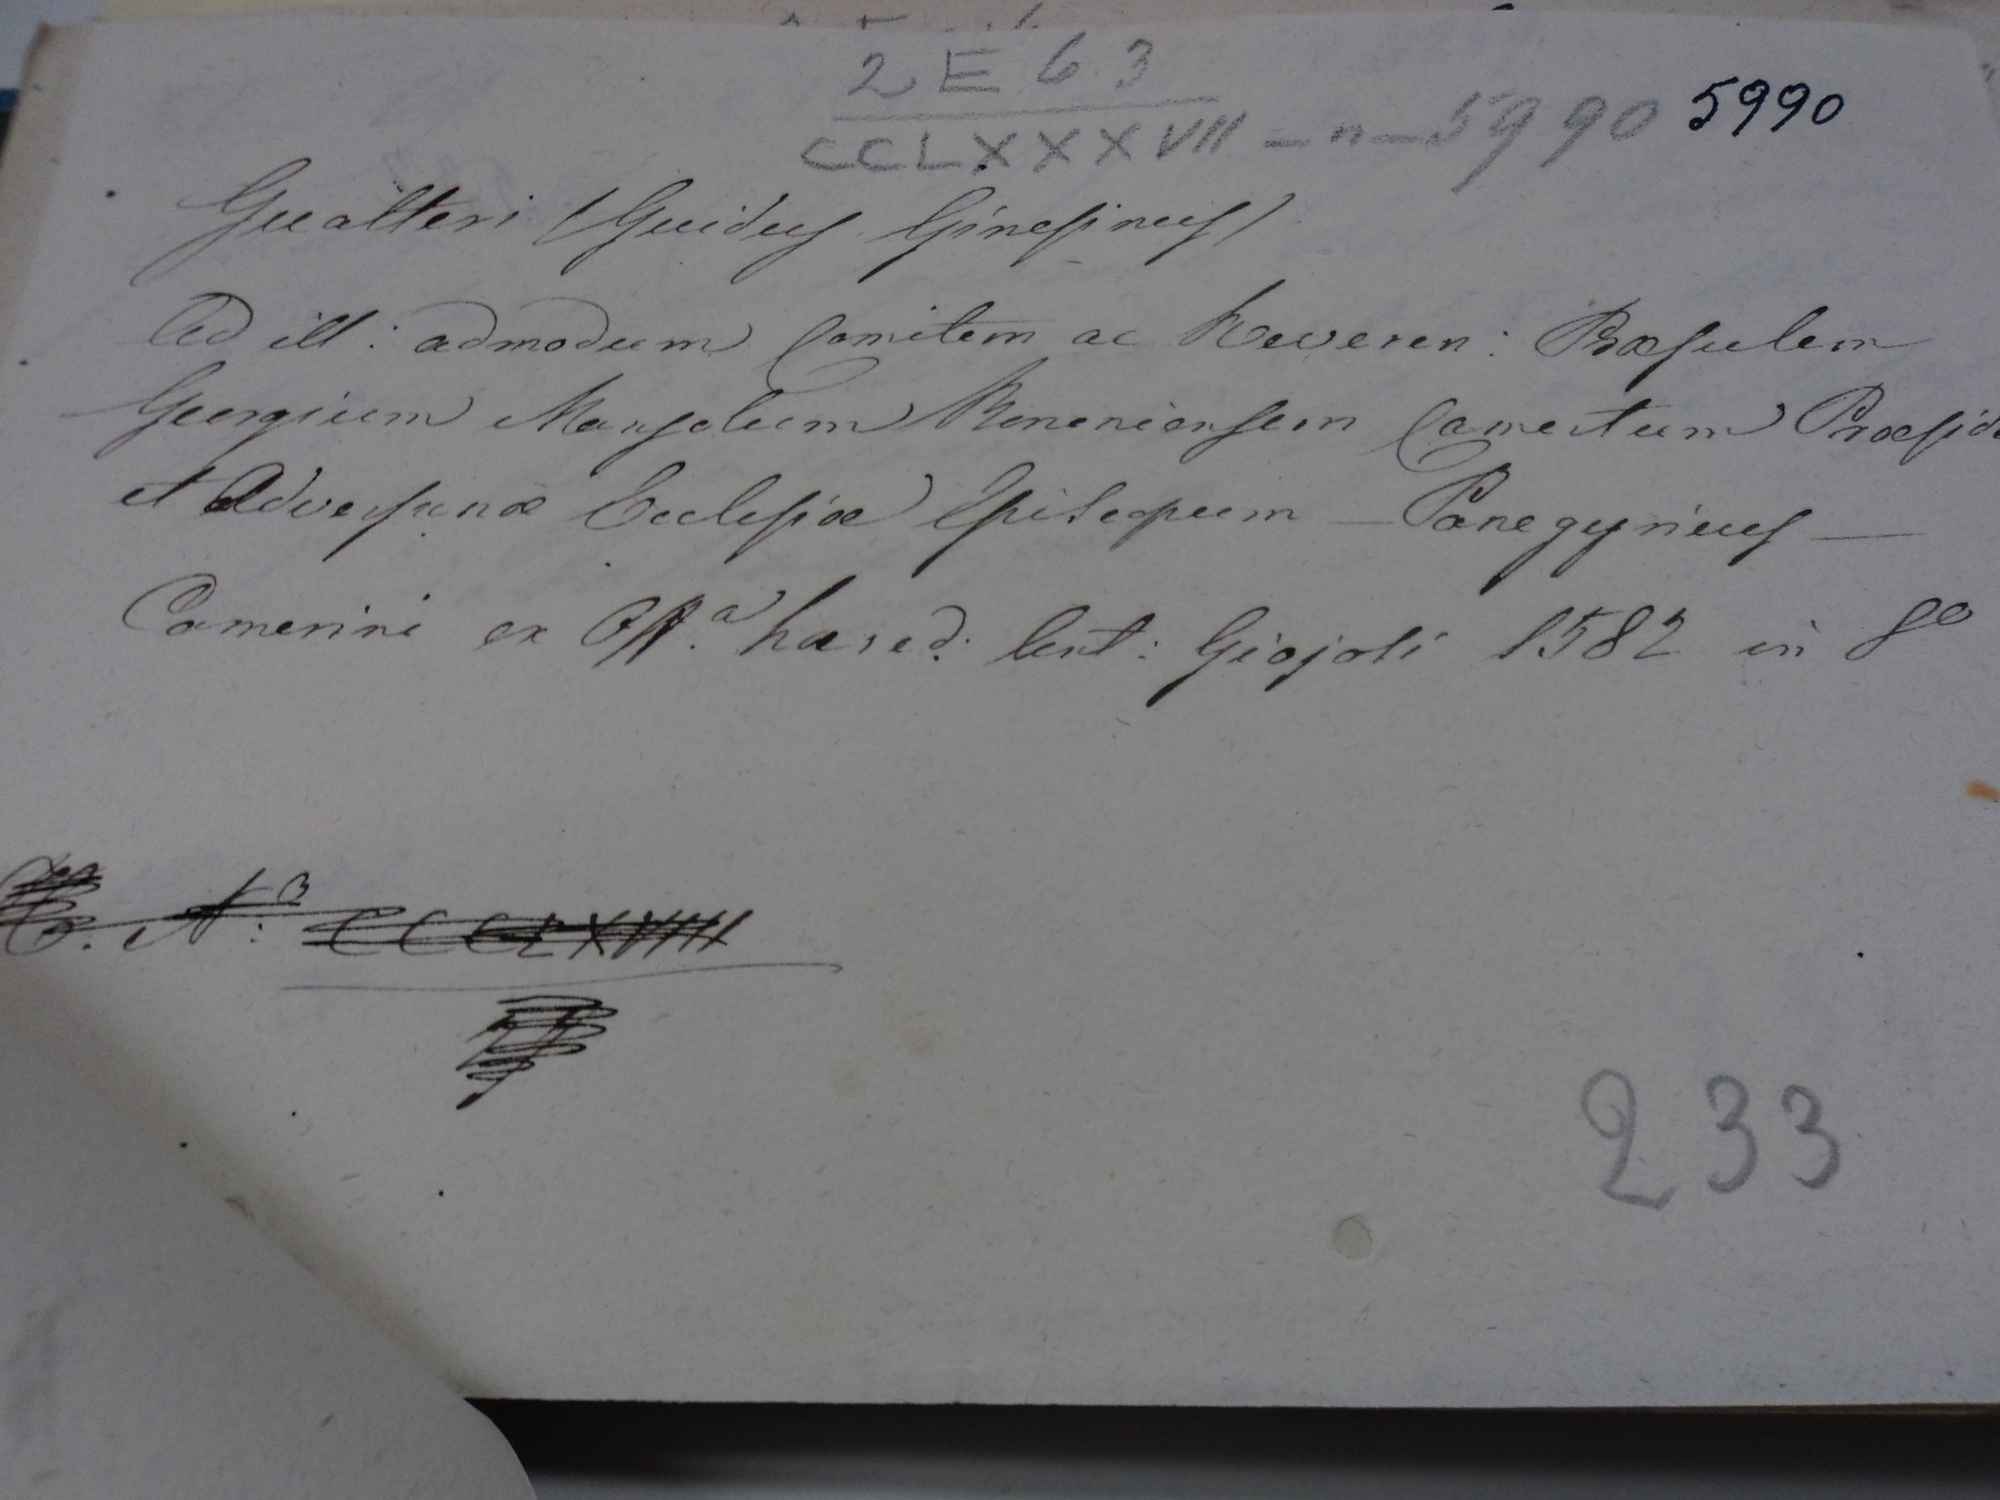 2 E 6 3
CCLXXXVII - n - 5990 5990
Gualteri (Guidus Ginesinus)
Ad ill: admodum Comitem ac Reveren: Præsulem
Georgium Manzolum Bononiensem Camertum Præside
et Adversanæ Ecclesiæ Episcopum - Panegyricus -
Camerini ex Off.a hæred: Ant: Giojosi 1582 in 8o
A.
CCCLXVIIII
233